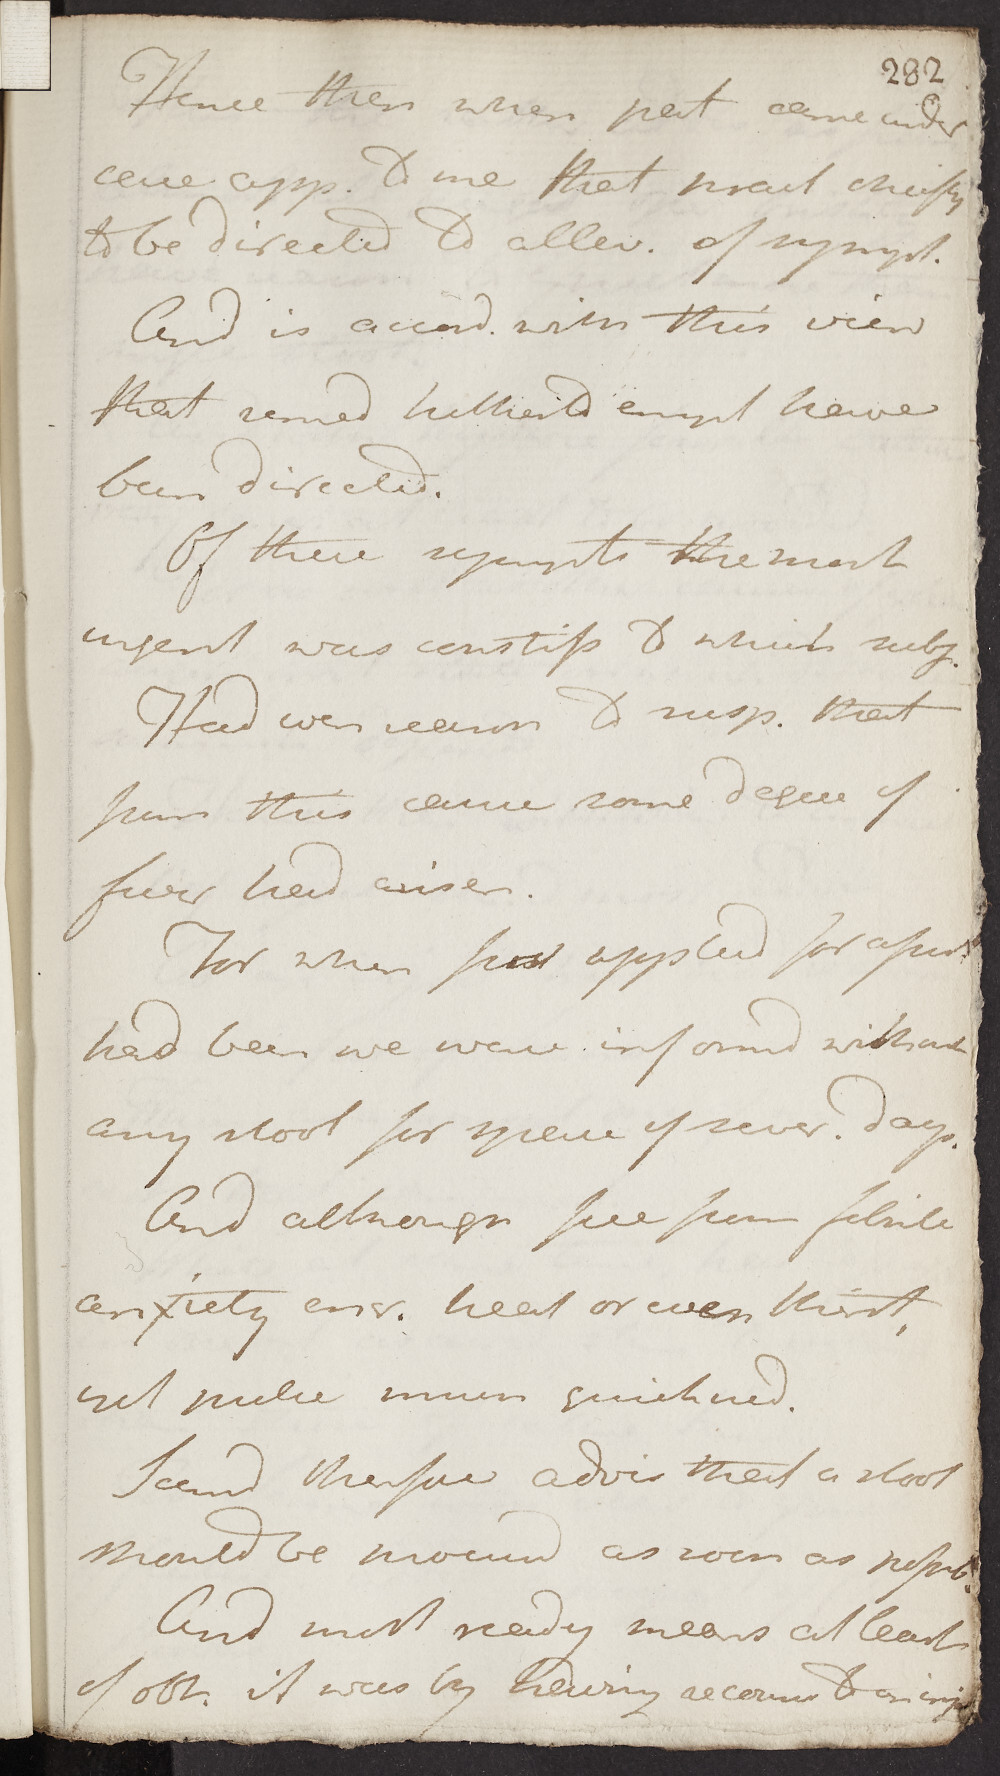 282
Hence then when pat came under
care app. to me that pract chiefly
to be directed to allev. of sympt.
And is accord. with this view
that remed hitherto empl have
been directed.
Of these sympts the most
urgent was constip to which subj.
Had even reason to susp. that
from this cause some degree of
fever had arisen.
For when first applied for assist
had been we were informd without
any stool for space of sever. days.
And although free from febrile
anxiety incr. heat or even thirst,
yet pulse much quickned.
Seemd therefore advis that a stool
should be procurd as soon as possib.
And most ready means at least
of obt. it was by having recourse to an inj